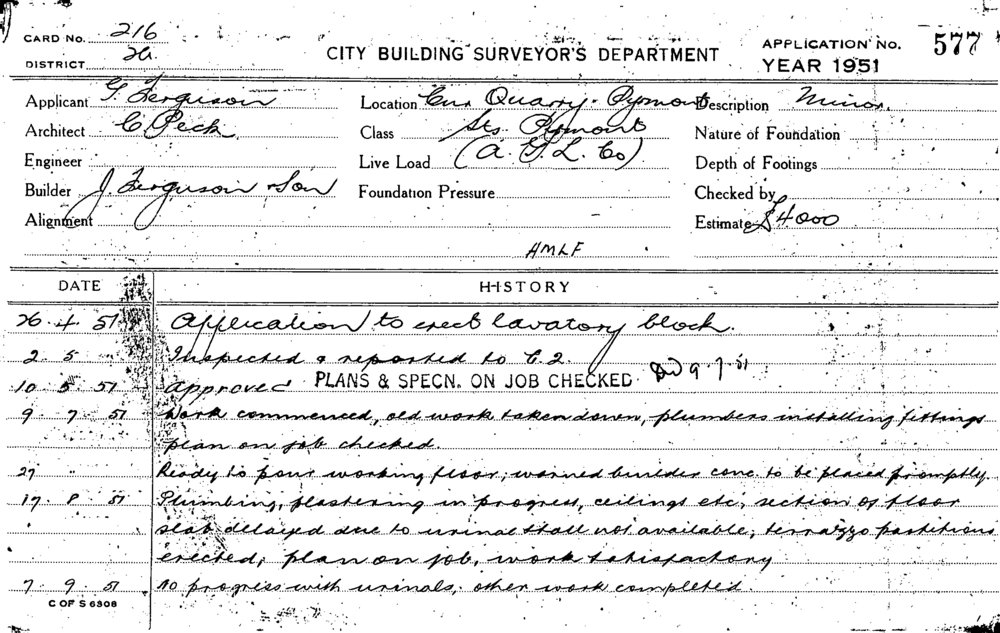 CARD No. 216
DISTRICT 2a.
CITY BUILDING SURVEYOR'S DEPARTMENT
APPLICATION No. 577
YEAR 1951
Applicant G. Ferguson
Location Cnr Quarry. Pyrmont
Description Minor.
Architect C Peck
Class Sts. Pyrmont
Nature of Foundation
Engineer
Live Load (A. G. L. Co)
Depth of Footings
Builder J. Ferguson & Son
Foundation Pressure
Checked by
Alignment
Estimate £4000
AMLF
DATE HISTORY
26 . 4 . 51 Application to erect lavatory block.
2 . 5 Inspected & reported to C.2.
10 5 51 Approved PLANS & SPECN. ON JOB CHECKED 9.7.51
9 . 7 . 51 Work commenced, old work taken down, plumbers installing fittings
plan on job checked.
27 " Ready to pour working floor, warned builder conc. to be placed promptly
17 . 8 . 51 Plumbing, plastering in progress, ceilings etc, section of floor
slab delayed due to urinal stall not available, terrazzo partitions
erected, plan on job, work satisfactory
7 . 9 . 51 No progress with urinals, other work completed.
C OF S 6308